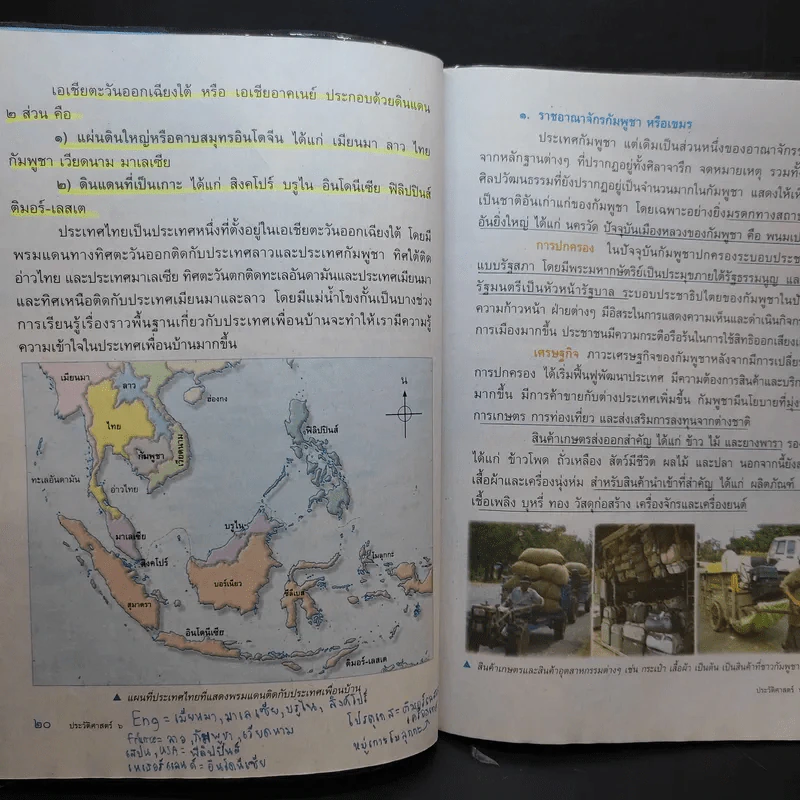 เอเชียตะวันออกเฉียงใต้ หรือ เอเชียอาคเนย์ ประกอบด้วยดินแดน
๒ ส่วน คือ
๑) แผ่นดินใหญ่หรือคาบสมุทรอินโดจีน ได้แก่ เมียนมา ลาว ไทย
กัมพูชา เวียดนาม มาเลเซีย
๒) ดินแดนที่เป็นเกาะ ได้แก่ สิงคโปร์ บรูไน อินโดนีเซีย ฟิลิปปินส์
ติมอร์-เลสเต
ประเทศไทยเป็นประเทศหนึ่งที่ตั้งอยู่ในเอเชียตะวันออกเฉียงใต้ โดยมี
พรมแดนทางทิศตะวันออกติดกับประเทศลาวและประเทศกัมพูชา ทิศใต้ติด
อ่าวไทย และประเทศมาเลเซีย ทิศตะวันตกติดทะเลอันดามันและประเทศเมียนมา
และทิศเหนือติดกับประเทศเมียนมาและลาว โดยมีแม่น้ำโขงกั้นเป็นบางช่วง
การเรียนรู้เรื่องราวพื้นฐานเกี่ยวกับประเทศเพื่อนบ้านจะทำให้เรามีความรู้
ความเข้าใจในประเทศเพื่อนบ้านมากขึ้น
เมียนมา
ลาว
ฮ่องกง
น
ไทย
ฟิลิปปินส์
กัมพูชา
เวียดนาม
ทะเลอันดามัน
อ่าวไทย
มาเลเซีย
บรูไน
สิงคโปร์
โมลุกกะ
บอร์เนียว
ซีลีเบส
สุมาตรา
อินโดนีเซีย
ติมอร์-เลสเต
▲ แผนที่ประเทศไทยที่แสดงพรมแดนติดกับประเทศเพื่อนบ้าน
๒๐ ประวัติศาสตร์ ๖
Eng = เมียนมา, มาเลเซีย, บรูไน, สิงคโปร์
ลาว, กัมพูชา, เวียดนาม
สเปน, USA = ฟิลิปปินส์
เนเธอร์แลนด์ = อินโดนีเซีย
โปรตุเกส =
หมู่เกาะโมลุกกะ
๑. ราชอาณาจักรกัมพูชา หรือเขมร
ประเทศกัมพูชา แต่เดิมเป็นส่วนหนึ่งของอาณาจักร
จากหลักฐานต่างๆ ที่ปรากฏอยู่ทั้งศิลาจารึก จดหมายเหตุ รวมทั้ง
ศิลปวัฒนธรรมที่ยังปรากฏอยู่เป็นจำนวนมากในกัมพูชา แสดงให้
เป็นชาติอันเก่าแก่ของกัมพูชา โดยเฉพาะอย่างยิ่งมรดกทาง
อันยิ่งใหญ่ ได้แก่ นครวัด ปัจจุบันเมืองหลวงของกัมพูชา คือ พนมเปญ
การปกครอง ในปัจจุบันกัมพูชาปกครองระบอบ
แบบรัฐสภา โดยมีพระมหากษัตริย์เป็นประมุขภายใต้รัฐธรรมนูญ และ
รัฐมนตรีเป็นหัวหน้ารัฐบาล ระบอบประชาธิปไตยของกัมพูชาใน
ความก้าวหน้า ฝ่ายต่างๆ มีอิสระในการแสดงความเห็นและดำเนิน
การเมืองมากขึ้น ประชาชนมีความกระตือรือร้นในการใช้สิทธิออกเสียง
เศรษฐกิจ ภาวะเศรษฐกิจของกัมพูชาหลังจากมีการ
การปกครอง ได้เริ่มฟื้นฟูพัฒนาประเทศ มีความต้องการสินค้าและ
มากขึ้น มีการค้าขายกับต่างประเทศเพิ่มขึ้น กัมพูชามีนโยบายที่
การเกษตร การท่องเที่ยว และส่งเสริมการลงทุนจากต่างชาติ
สินค้าเกษตรส่งออกสำคัญ ได้แก่ ข้าว ไม้ และยางพารา
ได้แก่ ข้าวโพด ถั่วเหลือง สัตว์มีชีวิต ผลไม้ และปลา นอกจากนี้ยัง
เสื้อผ้าและเครื่องนุ่งห่ม สำหรับสินค้านำเข้าที่สำคัญ ได้แก่ ผลิตภัณฑ์
เชื้อเพลิง บุหรี่ ทอง วัสดุก่อสร้าง เครื่องจักรและเครื่องยนต์
▲ สินค้าเกษตรและสินค้าอุตสาหกรรมต่างๆ เช่น กระเป๋า เสื้อผ้า เป็นต้น เป็นสินค้าที่ชาวกัมพูชา
ประวัติศาสตร์